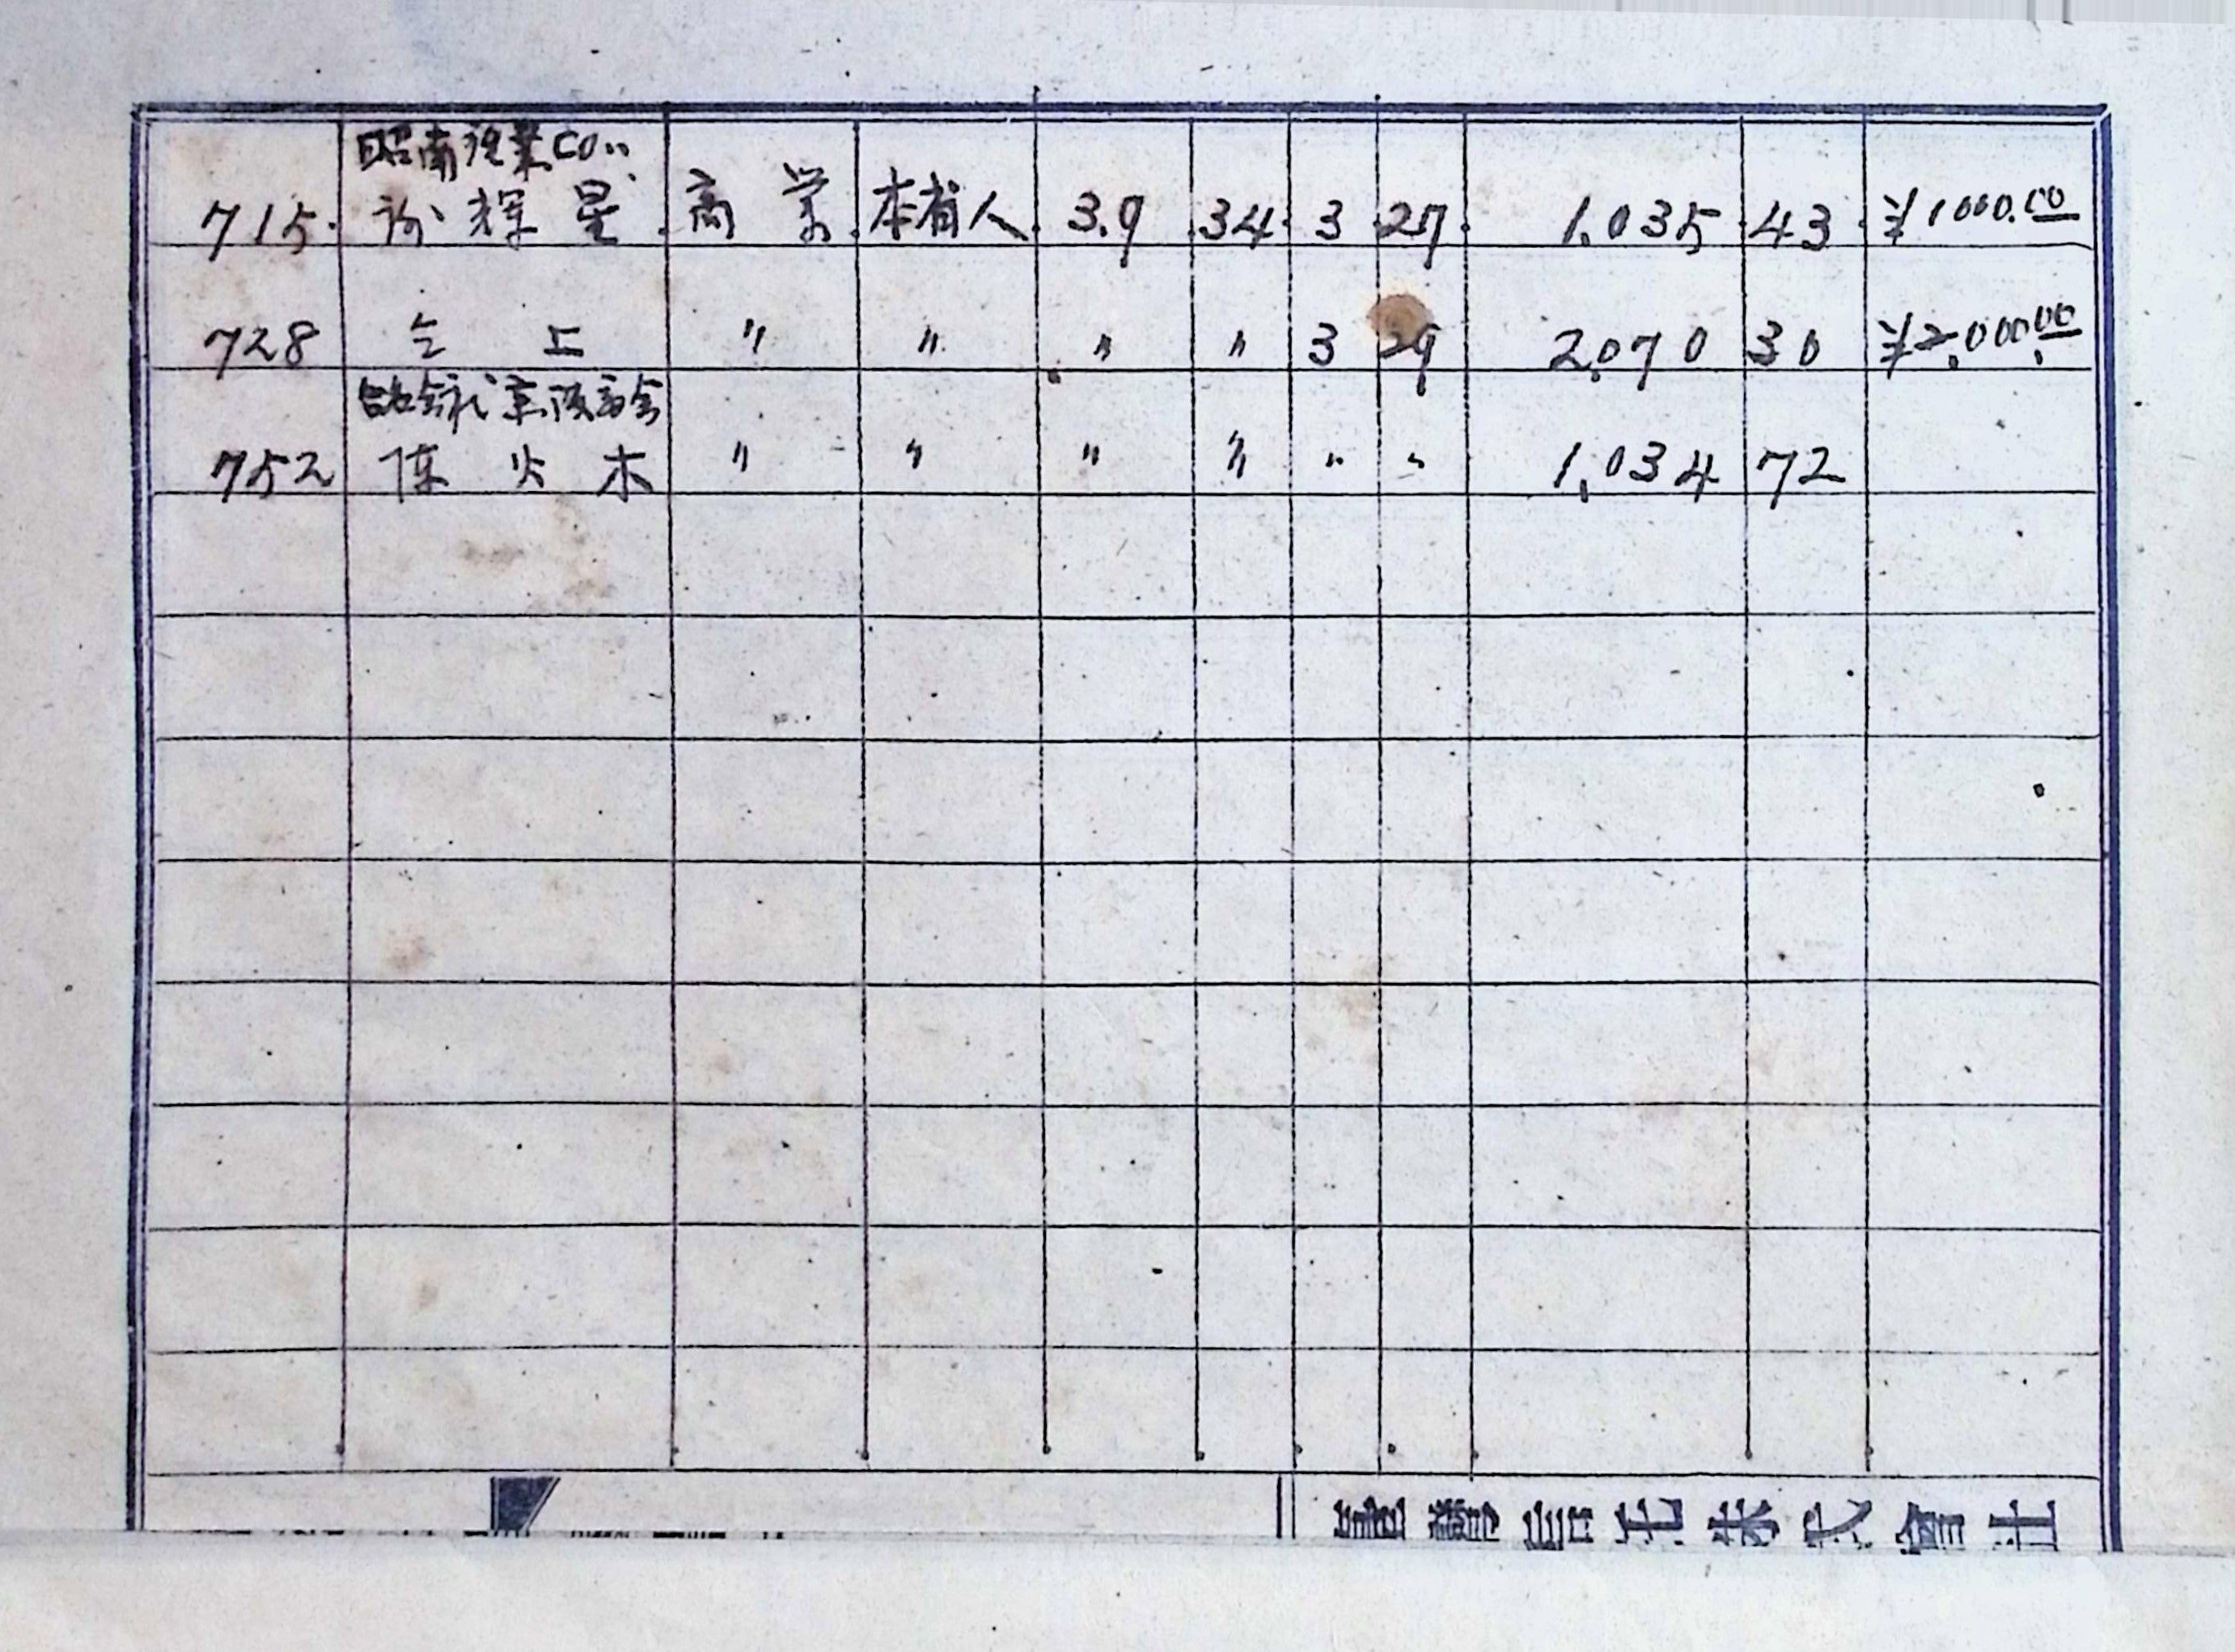 昭南漁業CO..
715. 許輝星 商業 本省人 3.9 34 3 27 1.035 43 ¥1000.00
728 仝上 〃 〃 〃 〃 3 29 2,070 30 ¥2,000.00
752 陳火木 〃 〃 〃 〃 〃 〃 1,034 72
臺灣 株式會社